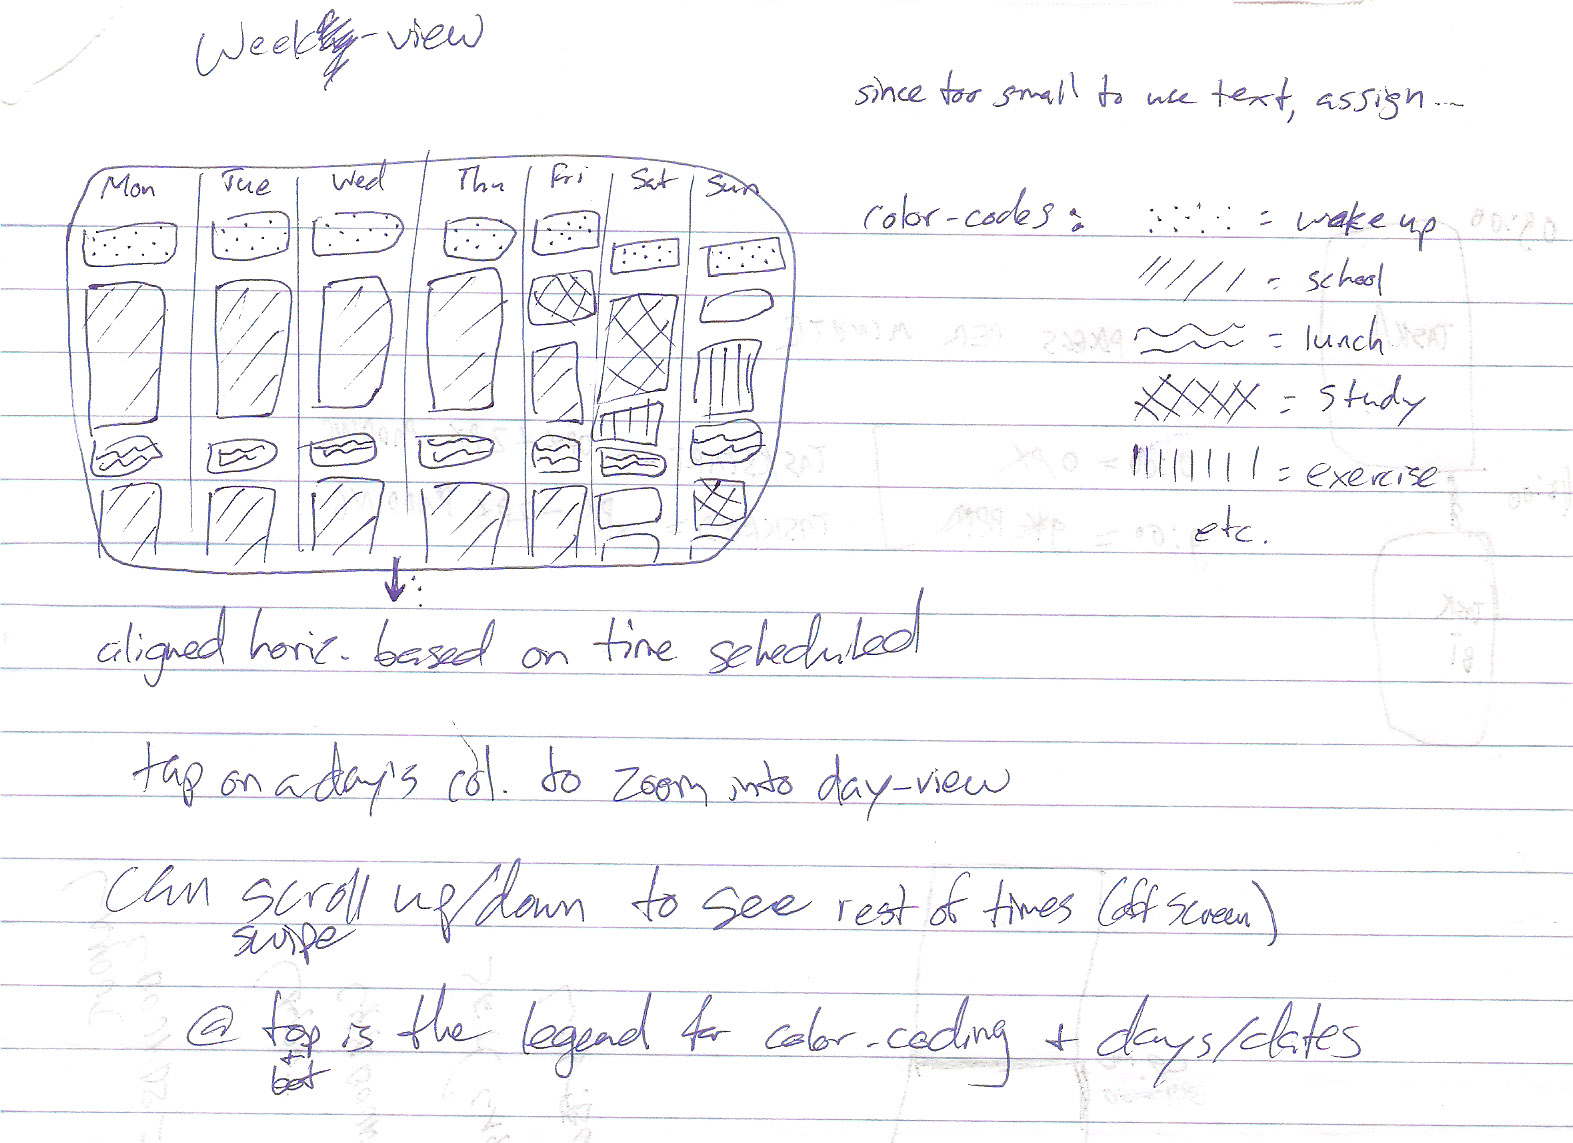 Week-view
since too small to use text, assign...
Mon Tue Wed Thu Fri Sat Sun
color-codes: = wake up
= school
= lunch
= study
= exercise
etc.
aligned horiz. based on time scheduled
tap on a day's col. to zoom into day-view
can scroll up/down to see rest of times (off screen)
swipe
@ top is the legend for color-coding + days/dates
+ bot